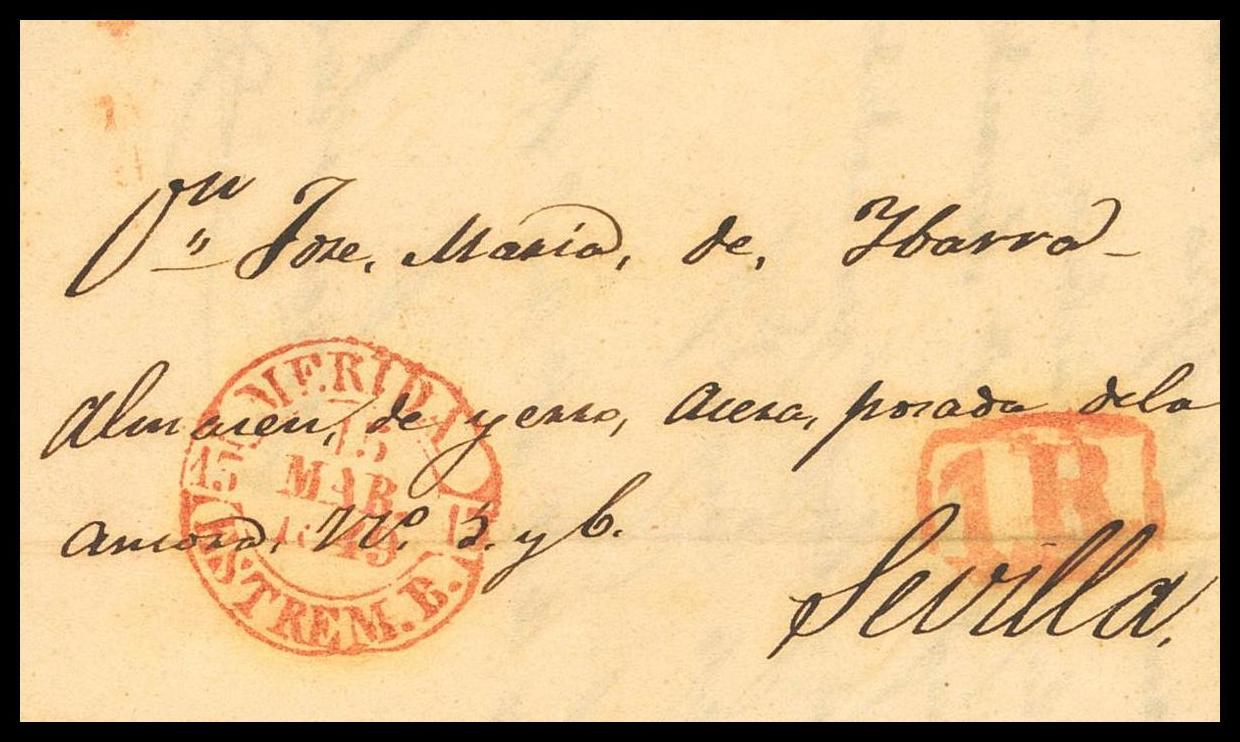 Dn Jose, Maria, de, Ybarra
Almacen, de yerro, acera, posada dela
ancora, No. 5. y 6.
Sevilla,
MERIDA
15
MAR
1849
15
ESTREM. B.
1R